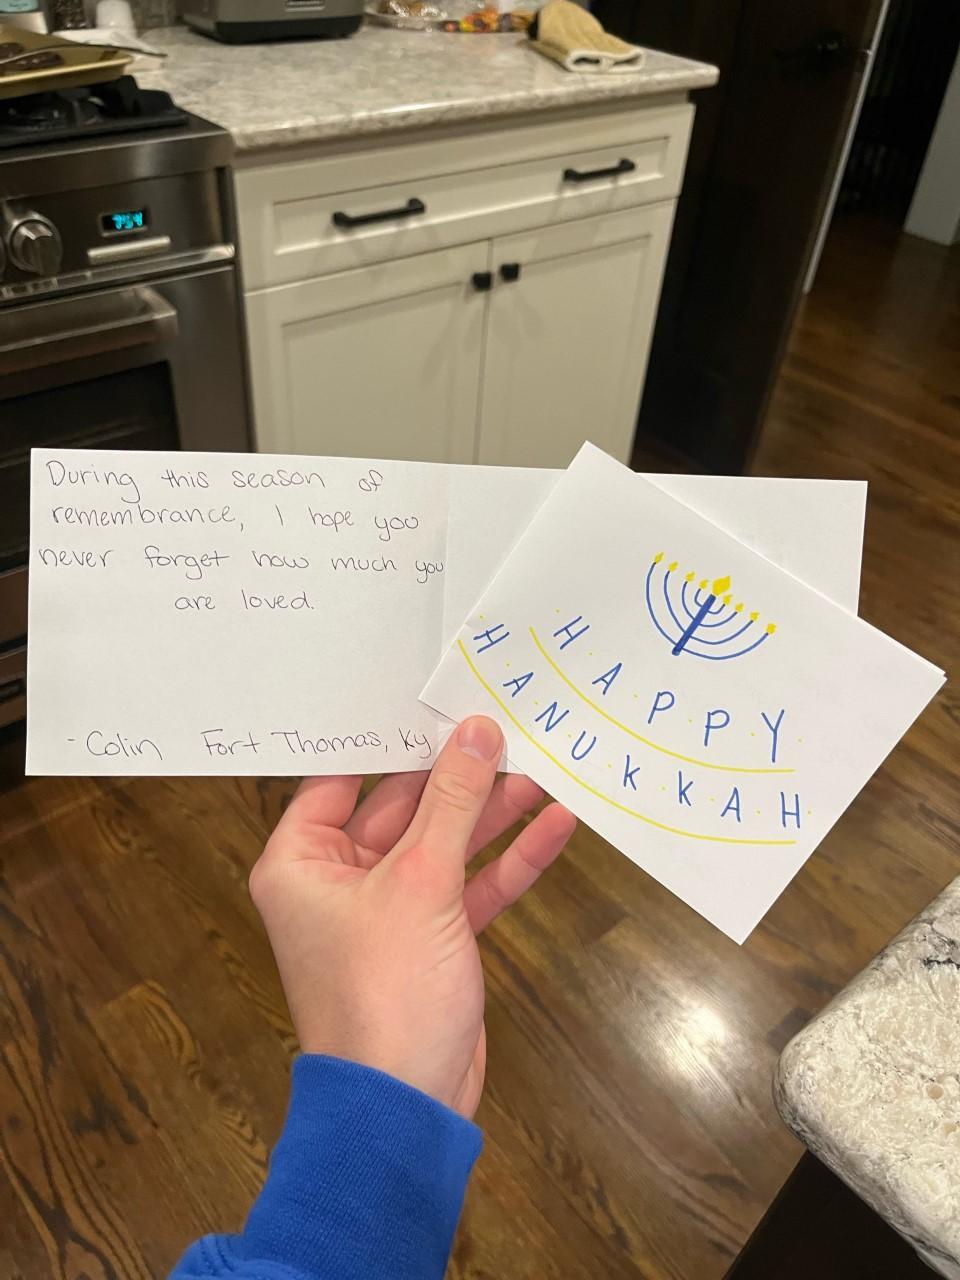 7:54
During this season of
remembrance, I hope you
never forget how much you
are loved.
- Colin Fort Thomas, Ky
H·A·P·P·Y·
·H·A·N·U·K·K·A·H·